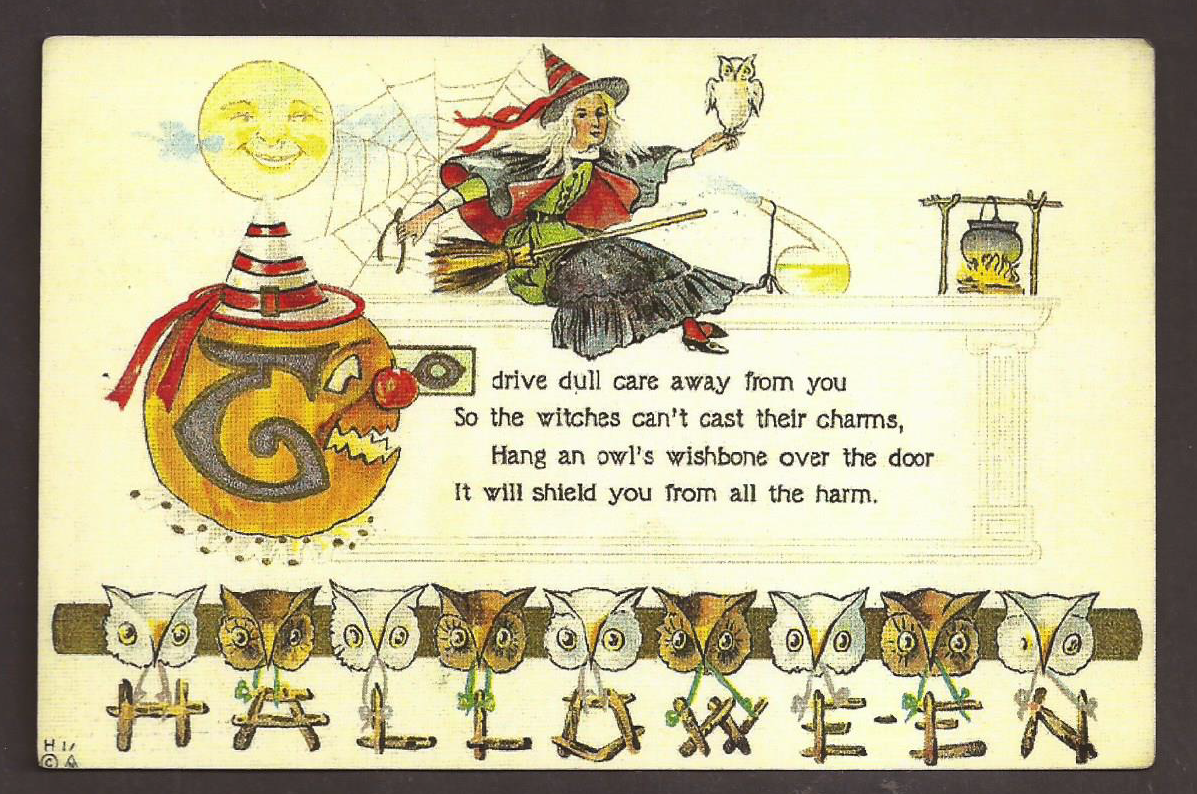 TO drive dull care away from you
So the witches can't cast their charms,
Hang an owl's wishbone over the door
It will shield you from all the harm.
HALLOWE-EN
H
©